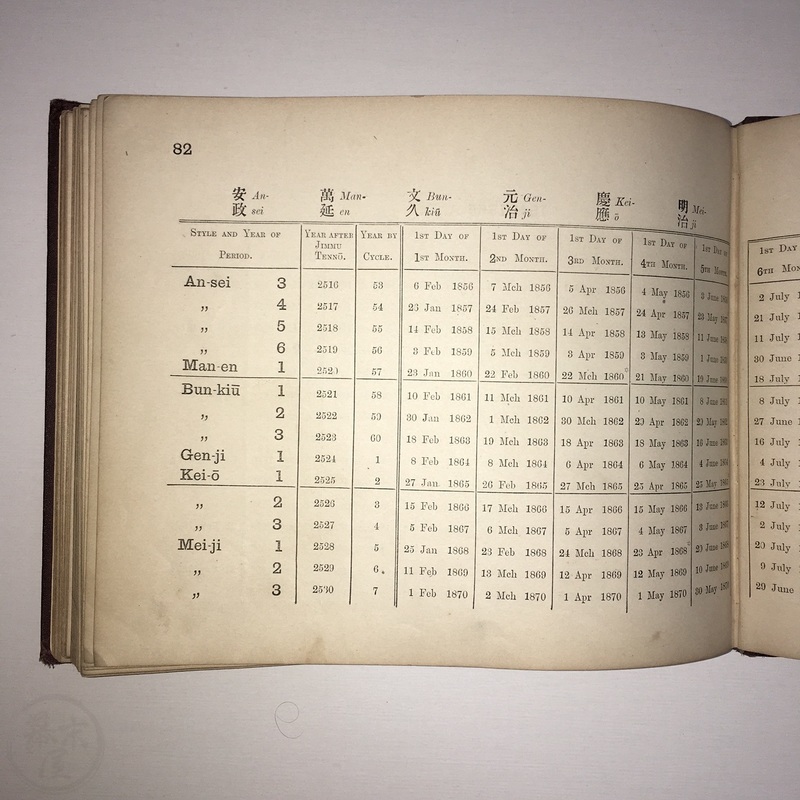 82
安 An- 萬 Man- 文 Bun- 元 Gen- 慶 Kei- 明 Mei-
政 sei 延 en 久 kiū 治 ji 應 ō 治 ji
STYLE AND YEAR OF PERIOD. YEAR AFTER JIMMU TENNŌ. YEAR BY CYCLE. 1ST DAY OF 1ST MONTH. 1ST DAY OF 2ND MONTH. 1ST DAY OF 3RD MONTH. 1ST DAY OF 4TH MONTH. 1ST DAY OF 5TH MONTH. 1ST DAY 6TH MON
An-sei 3 2516 53 6 Feb 1856 7 Mch 1856 5 Apr 1856 4 May 1856 3 June 2 July
„ 4 2517 54 Jan 1857 24 Feb 1857 26 Mch 1857 24 Apr 1857 23 May 21 July
„ 5 2518 55 14 Feb 1858 15 Mch 1858 14 Apr 1858 13 May 1858 11 June 11 July
„ 6 2519 56 3 Feb 1859 5 Mch 1859 3 Apr 1859 3 May 1859 1 June 30 June
Man-en 1 57 23 Jan 1860 22 Feb 1860 22 Mch 1860 21 May 1860 19 June 18 July
Bun-kiū 1 2521 58 10 Feb 1861 11 Mch 1861 10 Apr 1861 10 May 1861 8 June 8 July
„ 2 2522 59 30 Jan 1862 1 Mch 1862 30 Mch 1862 29 Apr 1862 29 May 27 June
„ 3 2523 60 18 Feb 1863 19 Mch 1863 18 Apr 1863 18 May 1863 16 June 16 July
Gen-ji 1 2524 1 8 Feb 1864 8 Mch 1864 6 Apr 1864 6 May 1864 4 June 4 July
Kei-ō 1 2525 2 27 Jan 1865 26 Feb 1865 27 Mch 1865 25 Apr 1865 25 May 23 July
„ 2 2526 3 15 Feb 1866 17 Mch 1866 15 Apr 1866 15 May 1866 13 June 12 July
„ 3 2527 4 5 Feb 1867 6 Mch 1867 5 Apr 1867 4 May 1867 3 June 2 July
Mei-ji 1 2528 5 25 Jan 1868 23 Feb 1868 24 Mch 1868 23 Apr 1868 June 20 July
„ 2 2529 6 11 Feb 1869 13 Mch 1869 12 Apr 1869 12 May 1869 10 June 9 July
„ 3 2530 7 1 Feb 1870 2 Mch 1870 1 Apr 1870 1 May 1870 30 May 29 June